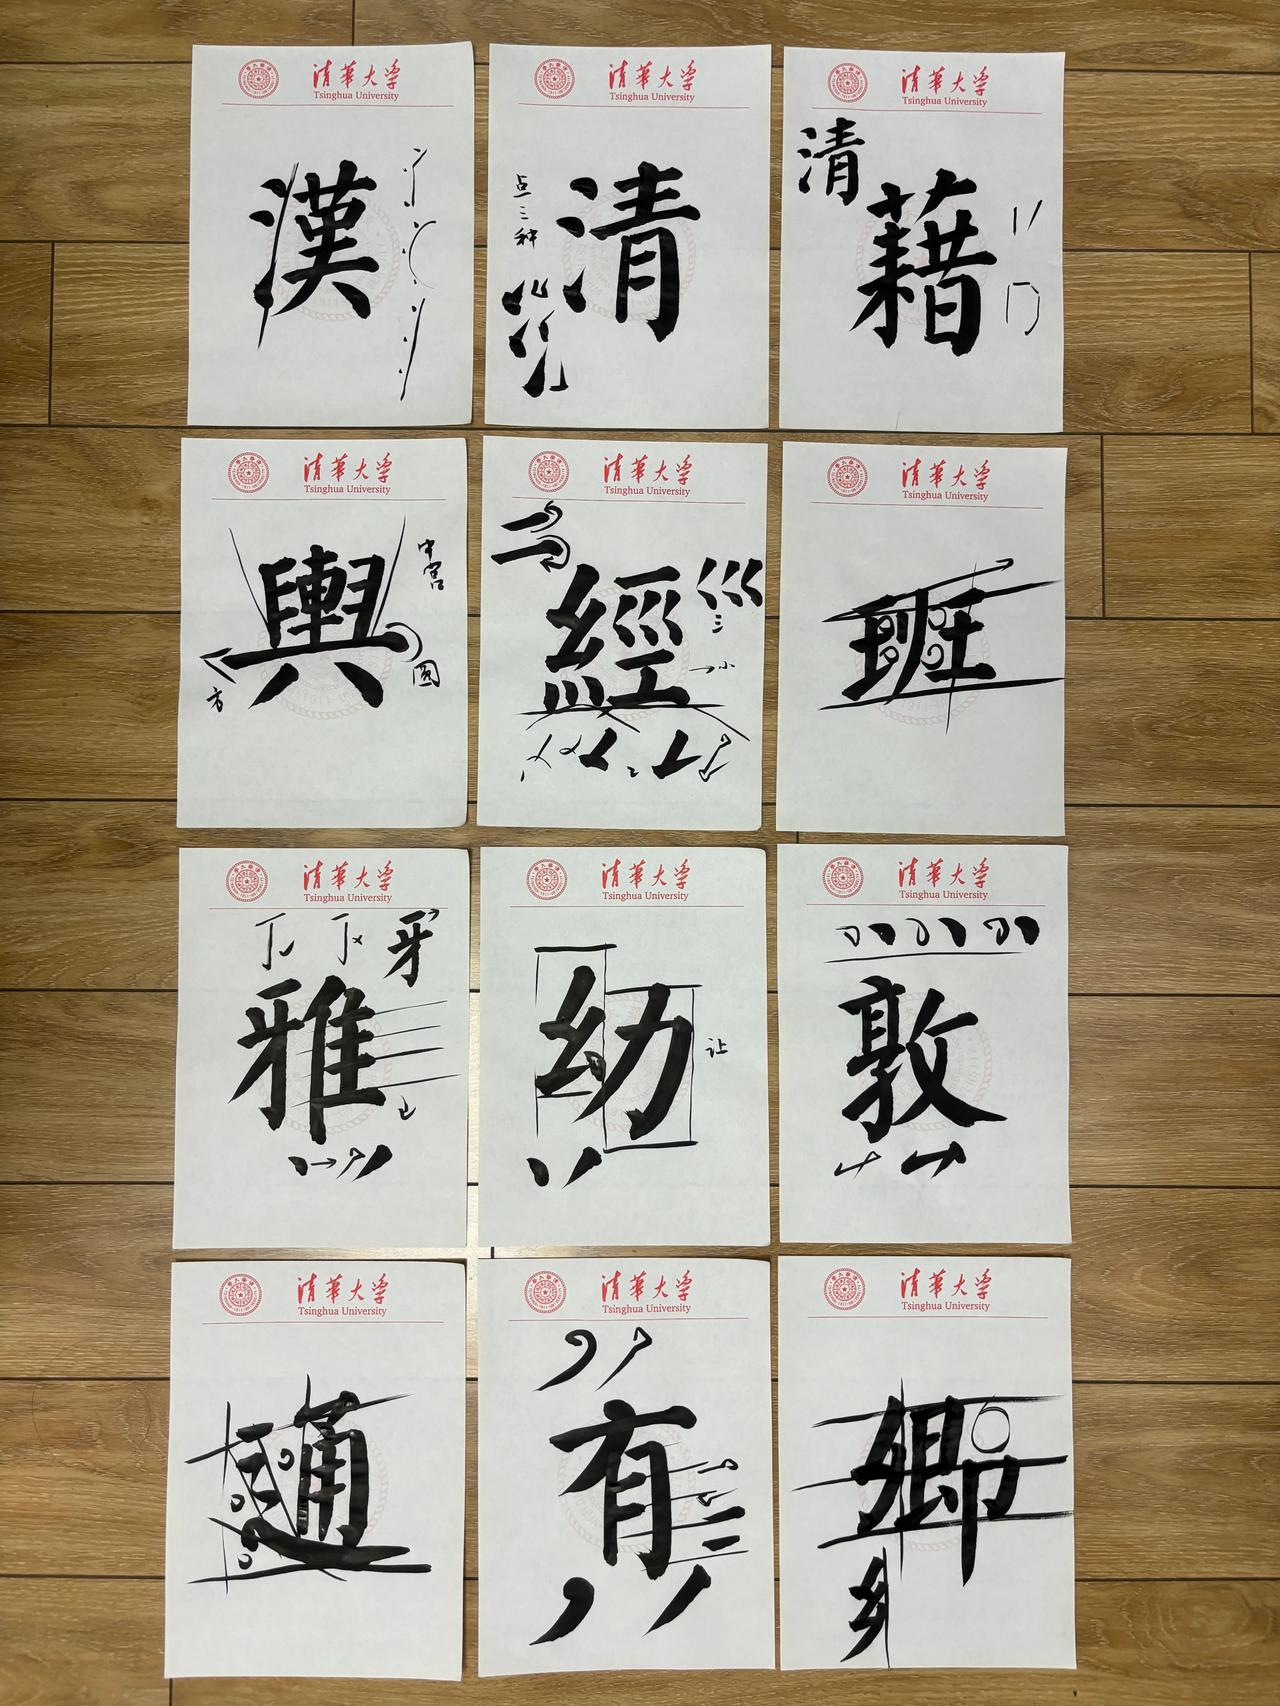 清華大学
Tsinghua University
漢
清華大学
Tsinghua University
点三种
清
清華大学
Tsinghua University
清
藉
清華大学
Tsinghua University
輿
中宫
方
圆
清華大学
Tsinghua University
經
三
小
清華大学
Tsinghua University
班
清華大学
Tsinghua University
牙
雅
清華大学
Tsinghua University
幼
让
清華大学
Tsinghua University
敦
清華大学
Tsinghua University
通
清華大学
Tsinghua University
有
清華大学
Tsinghua University
卿